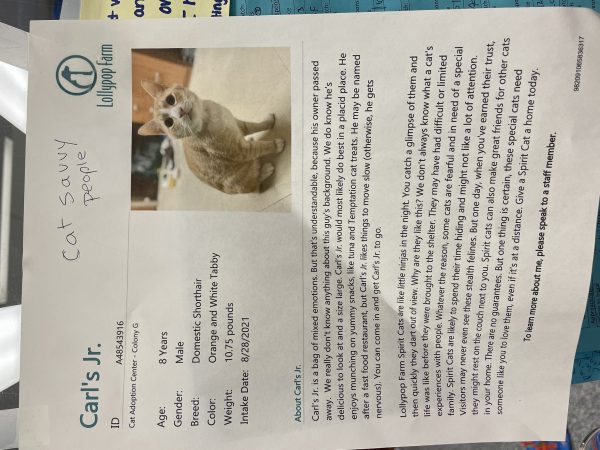 Carl's Jr.
cat savvy
people
Lollypop Farm
ID A48543916
Cat Adoption Center - Colony G
Age: 8 Years
Gender: Male
Breed: Domestic Shorthair
Color: Orange and White Tabby
Weight: 10.75 pounds
Intake Date: 8/28/2021
About Carl's Jr.
Carl's Jr. is a bag of mixed emotions. But that's understandable, because his owner passed
away. We really don't know anything about this guy's background. We do know he's
delicious to look at and a size large. Carl's Jr. would most likely do best in a placid place. He
enjoys munching on yummy snacks, like tuna and Temptation cat treats. He may be named
after a fast food restaurant, but Carl's Jr. likes things to move slow (otherwise, he gets
nervous). You can come in and get Carl's Jr. to go.
Lollypop Farm Spirit Cats are like little ninjas in the night. You catch a glimpse of them and
then quickly they dart out of view. Why are they like this? We don't always know what a cat's
life was like before they were brought to the shelter. They may have had difficult or limited
experiences with people. Whatever the reason, some cats are fearful and in need of a special
family. Spirit Cats are likely to spend their time hiding and might not like a lot of attention.
Visitors may never even see these stealth felines. But one day, when you've earned their trust,
they might rest on the couch next to you. Spirit cats can also make great friends for other cats
in your home. There are no guarantees. But one thing is certain, these special cats need
someone like you to love them, even if it's at a distance. Give a Spirit Cat a home today.
To learn more about me, please speak to a staff member.
982091065836317